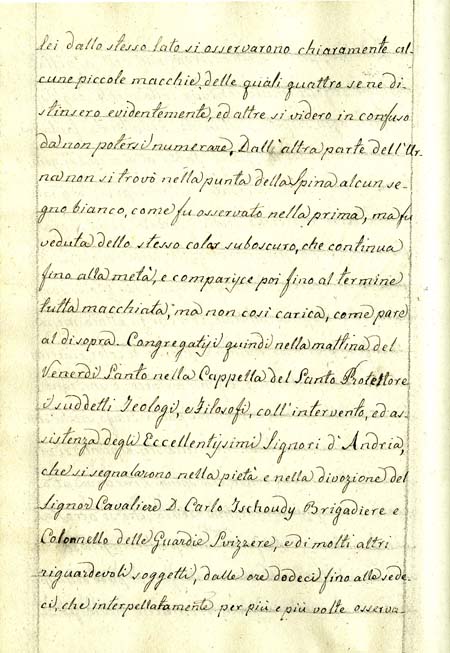 lei dallo stesso lato si osservarono chiaramente al
cune piccole macchie, delle quali quattro se ne di
stinsero evidentemente, ed altre si videro in confuso
da non potersi numerare. Dall'altra parte dell'Ur
na non si trovò nella punta della Spina alcun se
gno bianco, come fu osservato nella prima, ma fu
veduta dello stesso color suboscuro, che continua
fino alla metà, e comparisce poi fino al termine
tutta macchiata, ma non così carica, come pare
al disopra. Congregatisi quindi nella mattina del
Venerdì Santo nella Cappella del Santo Protettore
i suddetti Teologi, e Filosofi, coll'intervento, ed as
sistenza degli Eccellentissimi Signori d'Andria,
che si segnalarono nella pietà e nella divozione del
Signor Cavaliere D. Carlo Tschoudy Brigadiere e
Colonnello delle Guardie Svizzere, e di molti altri
riguardevoli soggetti, dalle ore dodeci fino alle sede
ci, che interpellatamente per più e più volte osserva-